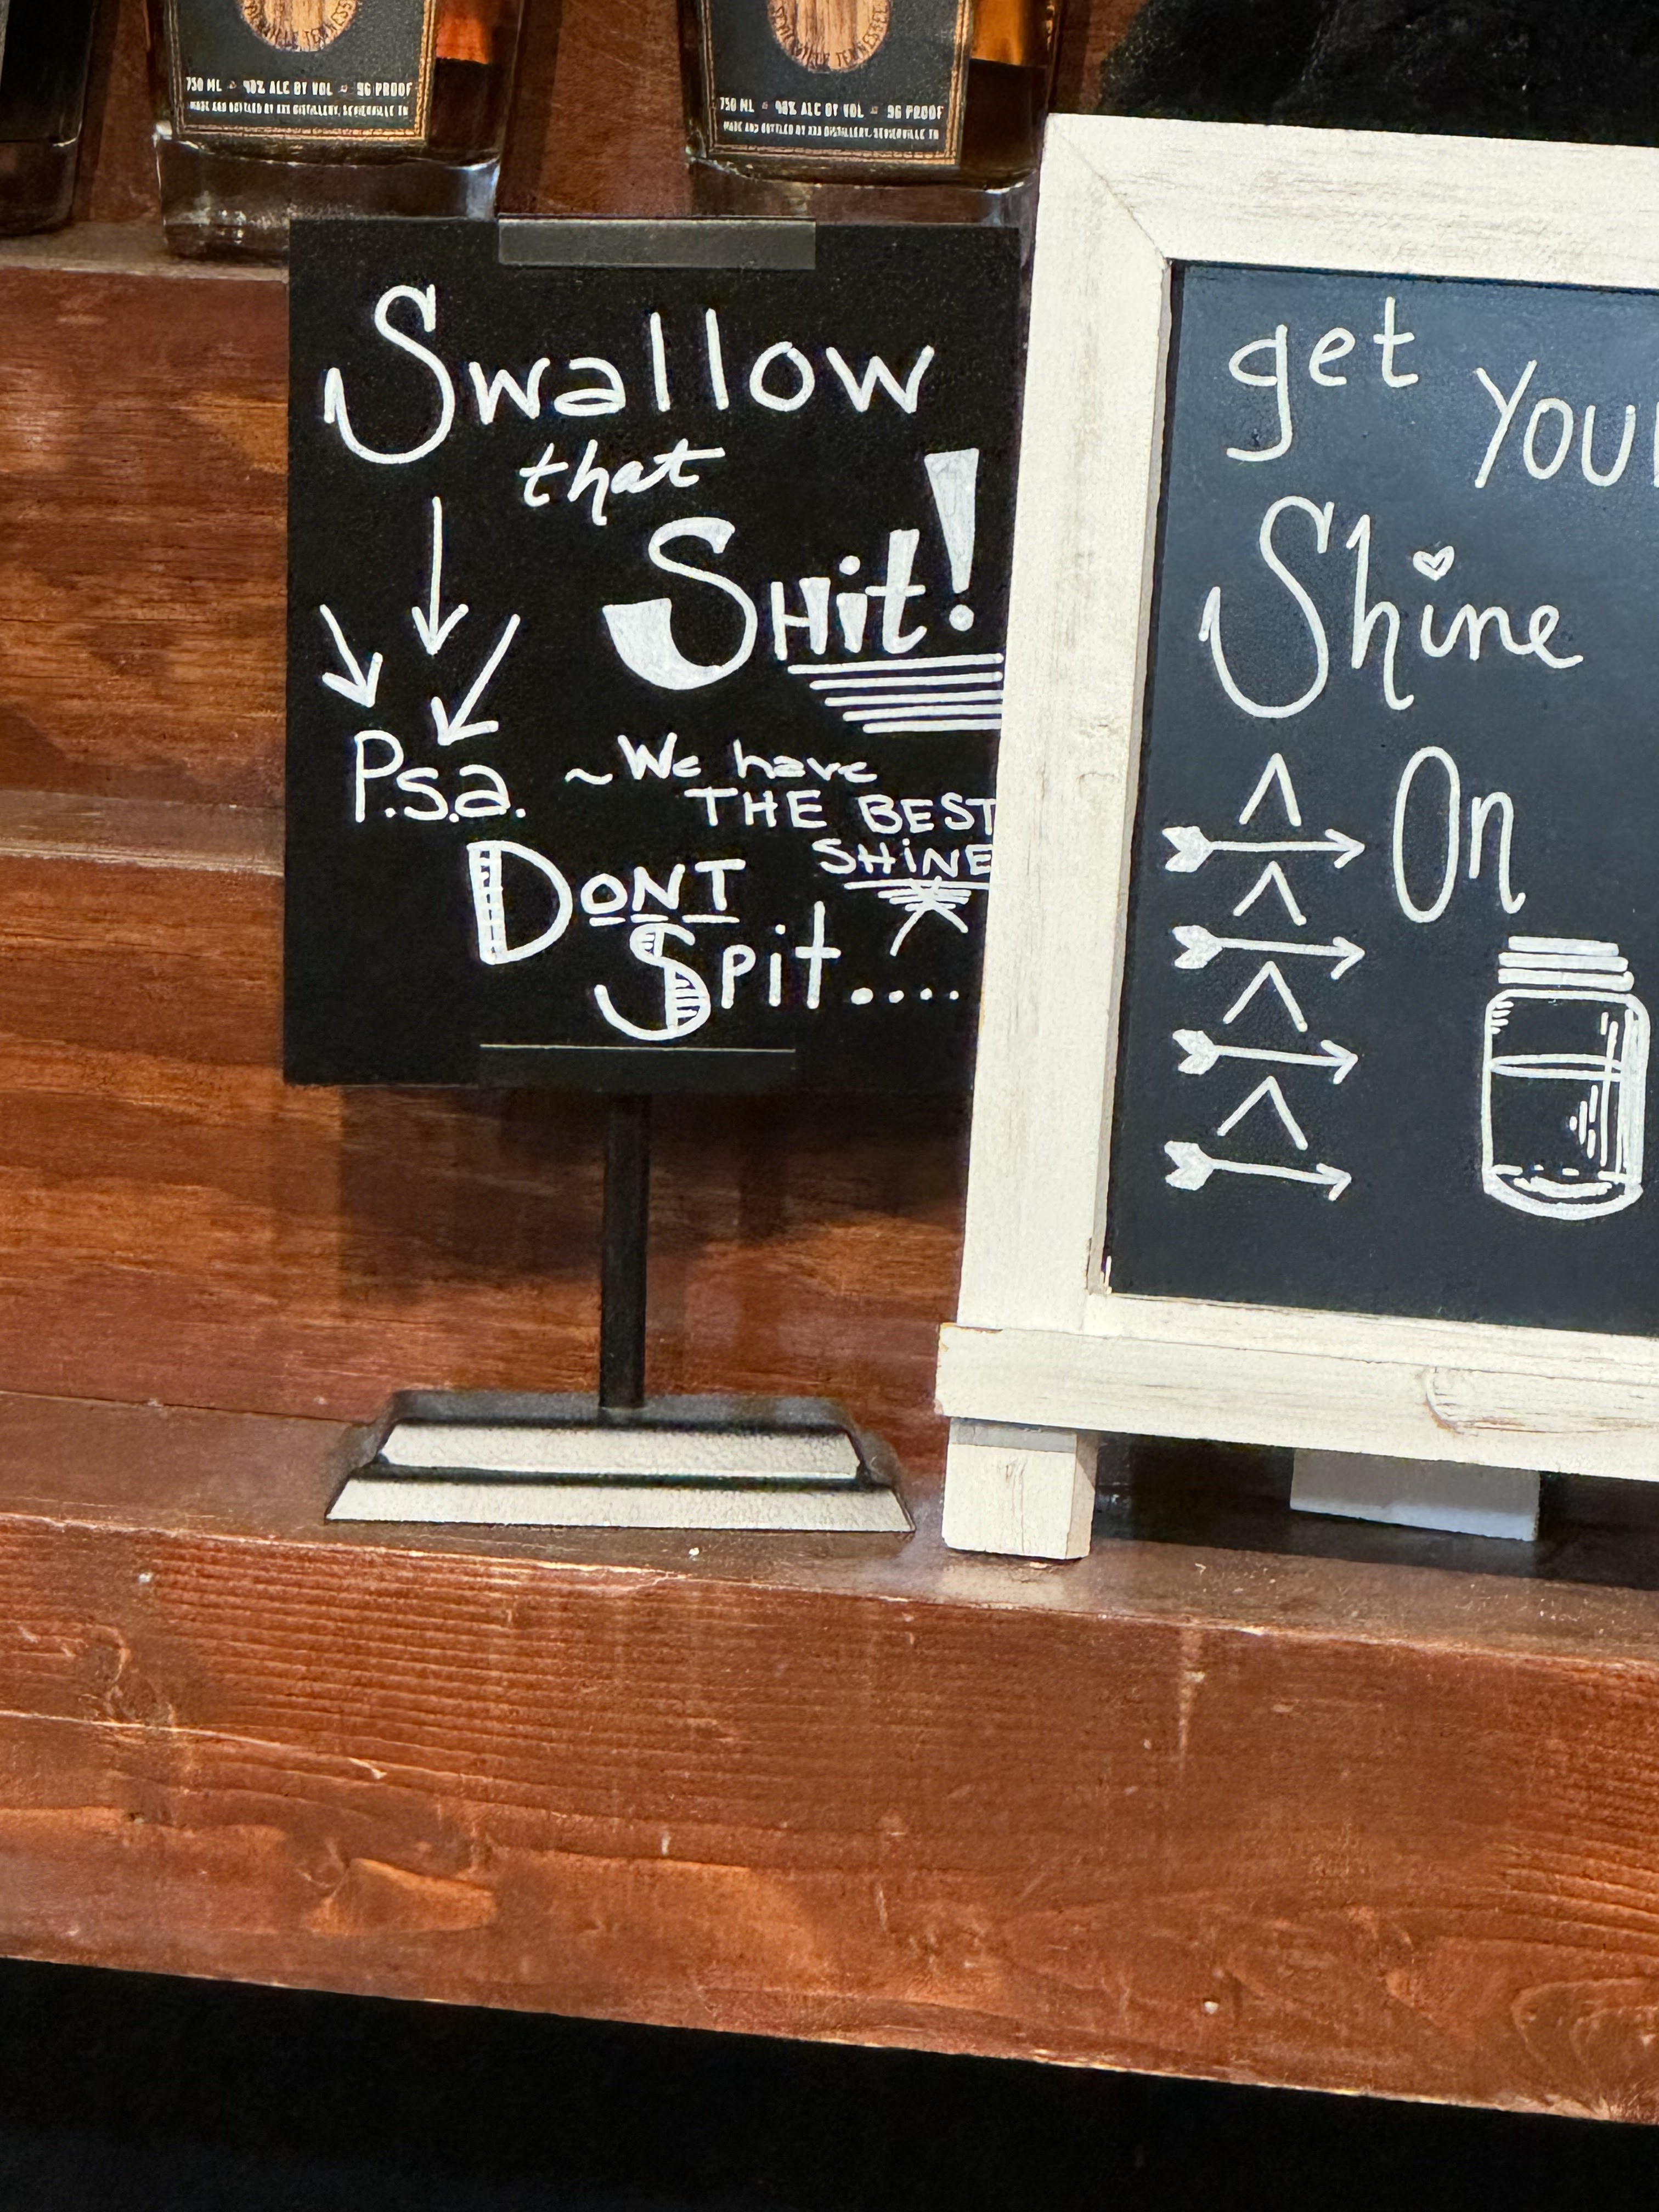 750 ML 48% ALC BY VOL 96 PROOF
MADE AND BOTTLED BY XXX DISTILLERY, SEVIERVILLE TN
TENNESSEE
750 ML 48% ALC BY VOL 96 PROOF
MADE AND BOTTLED BY XXX DISTILLERY, SEVIERVILLE TN
Swallow
that
SHit!
P.s.a. ~We have
THE BEST
SHiNE
DONT
Spit....
get
YOUR
Shine
On